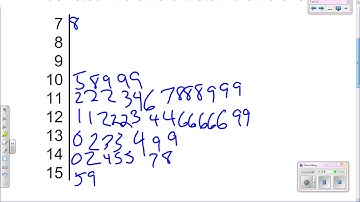 7 8
8
9
10 5 8 9 9 9
11 2 2 2 3 4 6 7 8 8 8 9 9 9
12 1 1 2 2 2 3 4 4 6 6 6 6 6 9 9
13 0 2 3 3 4 9 9
14 0 2 4 5 5 7 8
15 5 9